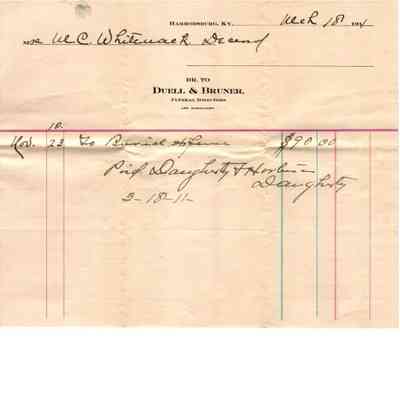 HARRODSBURG, KY. Mch 18 191
W. C. Whitenack Decend
DR. TO
DUELL & BRUNER,
FUNERAL DIRECTORS
AND EMBALMERS
10.
Nov. 23 To Burial $90 00
Pd Daugherty &
Daugherty
3-18-11-